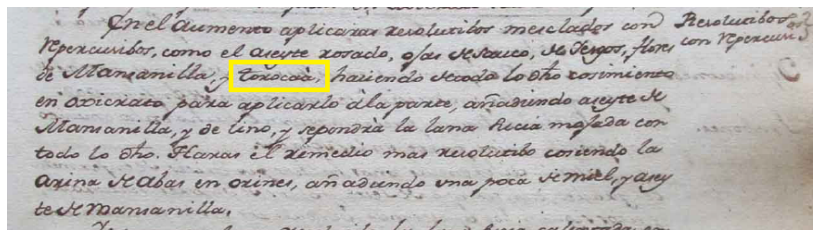 En el aumento aplicaras resolutibos mesclados con
repercusibos, como el aseyte rosado, ojas de Sauco, de Yesgos, flores
de Mansanilla, y Coronca, haciendo de todo lo dho cosimiento
en oxicrato para aplicarlo á la parte, añadiendo aseyte de
Mansanilla, y de lino, y sepondrá la lana sucia mojada con
todo lo dho. Haras el remedio mas resolutibo cosiendo la
arina de abas en orines, añadiendo una poca de miel, y asey
te de mansanilla.
Resolutibos
con repercusi